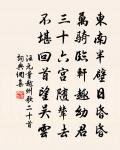 東南半壁日昏昏
萬騎臨軒趣幼君
三十六宮隨輦去
不堪回首望吳雲
汪元量越州歌二十首
詞典網集